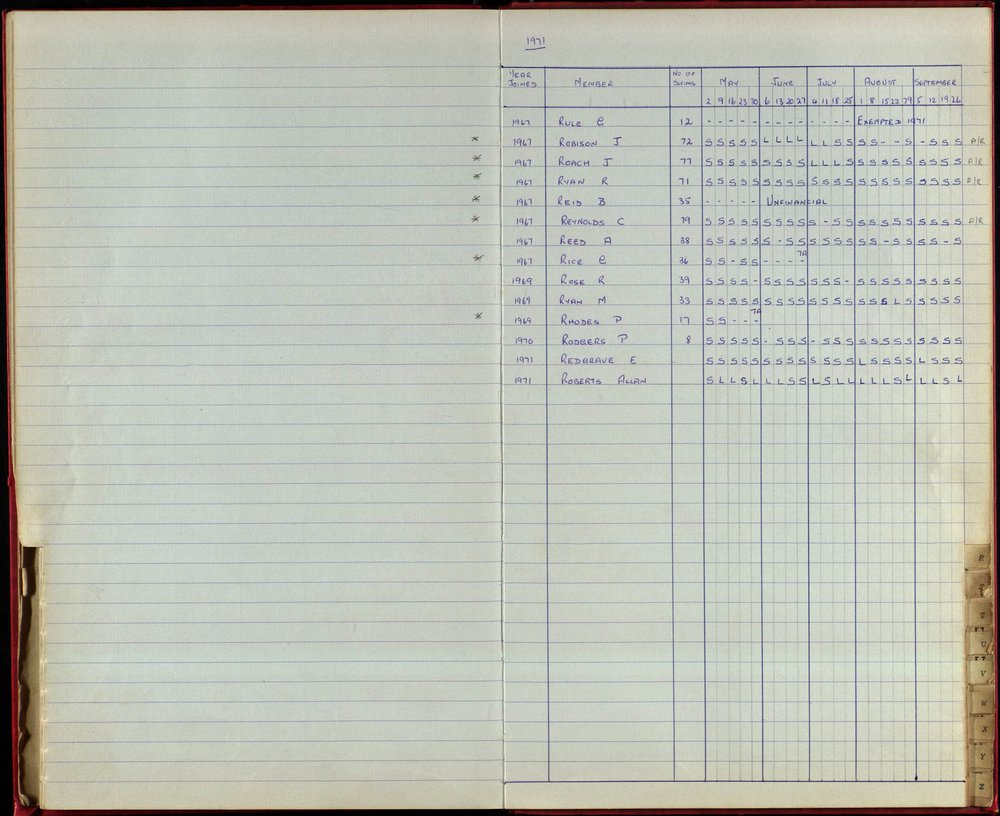 1971
YEAR JOINED MEMBER NO. OF SWIMS MAY JUNE JULY AUGUST SEPTEMBER
2 9 16 23 30 6 13 20 27 4 11 18 25 1 8 15 22 29 5 12 19 26
1967 RULE G 12 - - - - - - - - - - - - - EXEMPTED 1971
* 1967 ROBISON J 72 S S S S S L L L L L L S S S S - - S - S S S A/R
* 1967 ROACH J 77 S S S S S S S S S L L L S S S S S S S S S S A/R
* 1967 RYAN R 71 S S S S S S S S S S S S S S S S S S S S S S A/R
* 1967 REID B 35 - - - - - UNFINANCIAL
* 1967 REYNOLDS C 79 S S S S S S S S S S - S S S S S S S S S S S A/R
1967 REED A 38 S S S S S S - S S S S S S S S - S S S S - S
* 1967 RICE G 36 S S - S S - - - - 7A
1969 ROSE R 39 S S S S - S S S S S S S - S S S S S S S S S
1969 RYAN M 33 S S S S S S S S S S S S S S S S L S S S S S
* 1969 RHODES P 17 S S - - - 7A
1970 RODGERS P 8 S S S S S - S S S - S S S S S S S S S S S S
1971 REDGRAVE E S S S S S S S S S S S S S L S S S S L S S S
1971 ROBERTS ALLAN S L L S L L L S S L S L L L L L S L L L S L
R
S
T
U
V
W
X
Y
Z